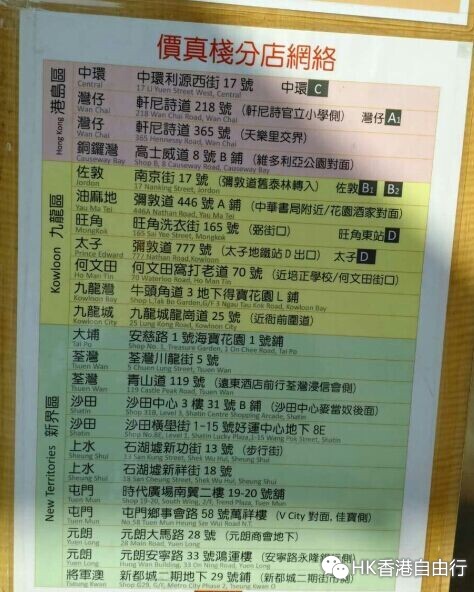 價真棧分店網絡
港島區 Hong Kong
中環 中環利源西街 17 號 中環 C
Central 17 Li Yuen Street West, Central
灣仔 軒尼詩道 218 號 (軒尼詩官立小學側) 灣仔 A1
Wan Chai 218 Wan Chai Road, Wan Chai
灣仔 軒尼詩道 365 號 (天樂里交界)
Wan Chai 365 Hennessy Road, Wan Chai
銅鑼灣 高士威道 8 號 B 鋪 (維多利亞公園對面)
Causeway Bay Shop B, 8 Causeway Road, Causeway Bay
九龍區 Kowloon
佐敦 南京街 17 號 (彌敦道舊泰林轉入) 佐敦 B1 B2
Jordon 17 Nanking Street, Jordon
油麻地 彌敦道 446 號 A 鋪 (中華書局附近/花園酒家對面)
Yau Ma Tei 446A Nathan Road, Yau Ma Tei
旺角 旺角洗衣街 165 號 (弼街口) 旺角東站 D
Mong Kok 165 Sai Yee Street, Mongkok
太子 彌敦道 777 號 (太子地鐵站 D 出口) 太子 D
Prince Edward 777 Nathan Road, Kowloon
何文田 何文田窩打老道 70 號 (近培正學校/何文田街口)
Ho Man Tin 70 Waterloo Road, Ho Man Tin
九龍灣 牛頭角道 3 地下得寶花園 L 鋪
Kowloon Bay Shop L, Tak Bo Garden, G/F 3 Ngau Tau Kok Road, Kowloon Bay
九龍城 九龍城龍崗道 25 號 (近衙前圍道)
Kowloon City 25 Lung Kong Road, Kowloon City
新界區 New Territories
大埔 安慈路 1 號海寶花園 1 號鋪
Tai Po Shop No. 1, Treasure Garden, 1 On Chee Road, Tai Po
荃灣 荃灣川龍街 5 號
Tsuen Wan 5 Chuen Lung Street, Tsuen Wan
荃灣 青山道 119 號 (遠東酒店前荃灣浸信會側)
Tsuen Wan 119 Castle Peak Road, Tsuen Wan
沙田 沙田中心 3 樓 31號 B 鋪 (沙田中心麥當奴後面)
Shatin Shop 31B, Level 3, Shatin Centre Shopping Arcade, Shatin
沙田 沙田橫壆街 1-15 號好運中心地下 8E
Shatin Shop No.8E, Level 1, Shatin Lucky Plaza, 1-15 Wang Pok Street, Shatin
上水 石湖墟新功街 13 號 (步行街)
Sheung Shui 13 San Kung Street, Shek Wu Hui, Sheung Shui
上水 石湖墟新祥街 18 號
Sheung Shui 18 San Cheung Street, Shek Wu Hui, Sheung Shui
屯門 時代廣場南翼二樓 19-20 號舖
Tuen Mun Shop 19-20, South Wing, 2/F, Trend Plaza, Tuen Mun
屯門 屯門鄉事會路 58 號萬祥樓 (V City 對面, 佳寶側)
Tuen Mun No.58 Tuen Mun Heung Sze Wui Road N.T.
元朗 元朗大馬路 28 號 (元朗商會地下)
Yuen Long 28 Main Road, Yuen Long
元朗 元朗安寧路 33 號鴻運樓 (安寧路永隆
Yuen Long Hung Wan Building, 33 On Ning Road, Yuen Long
將軍澳 新都城二期地下 29 號鋪 (新都城二期街市
Tseung Kwan O Shop G29, G/F, Metro City Phase 2, Tseung Kwan O
HK香港自由行